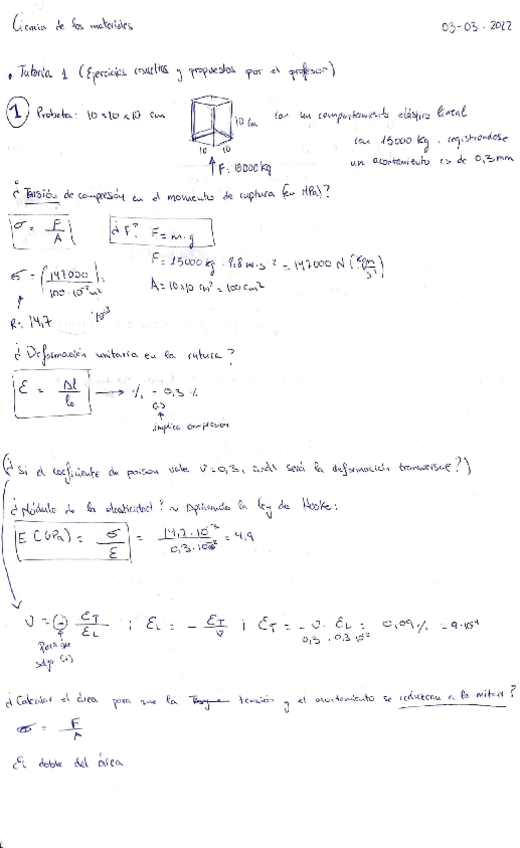 Ciencia de los materiales 03-03-2022
• Tutoria 1 (Ejercicios resueltos y propuestos por el profesor)
1 Probeta: 10x10x10 cm con un comportamiento elástico lineal
10 cm
con 15000 kg, registrandose
10 10
un acortamiento es de 0,3 mm
↑ F: 15000 kg
¿Tensión de compresión en el momento de ruptura (en MPa)?
σ = F/A ¿F? F = m·g
F = 15000 kg · 9,8 m·s² = 147000 N (kg m/s²)
σ = (147000 / 100·10² m²) A = 10x10 cm² = 100 cm²
R: 14,7
¿Deformación unitaria en la rutura?
ε = Δl/l₀ → % - 0,3 %
implica compresión
(¿Si el coeficiente de poisson vale ν=0,3, cuál será la deformación transversal?)
¿Módulo de la elasticidad? ~ Aplicando la ley de Hooke:
E (GPa) = σ/ε = 14,7·10⁻³ / 0,3·10⁻² = 4,9
ν = (-) εT/εL ; εL = - εT/ν ; εT = - ν · εL = 0,09 % = 9·10⁻⁴
0,3 · 0,3·10⁻²
Para que
salga (+)
¿Calcular el área para que la tensión y el acortamiento se reduzcan a la mitad?
σ = F/A
El doble del área